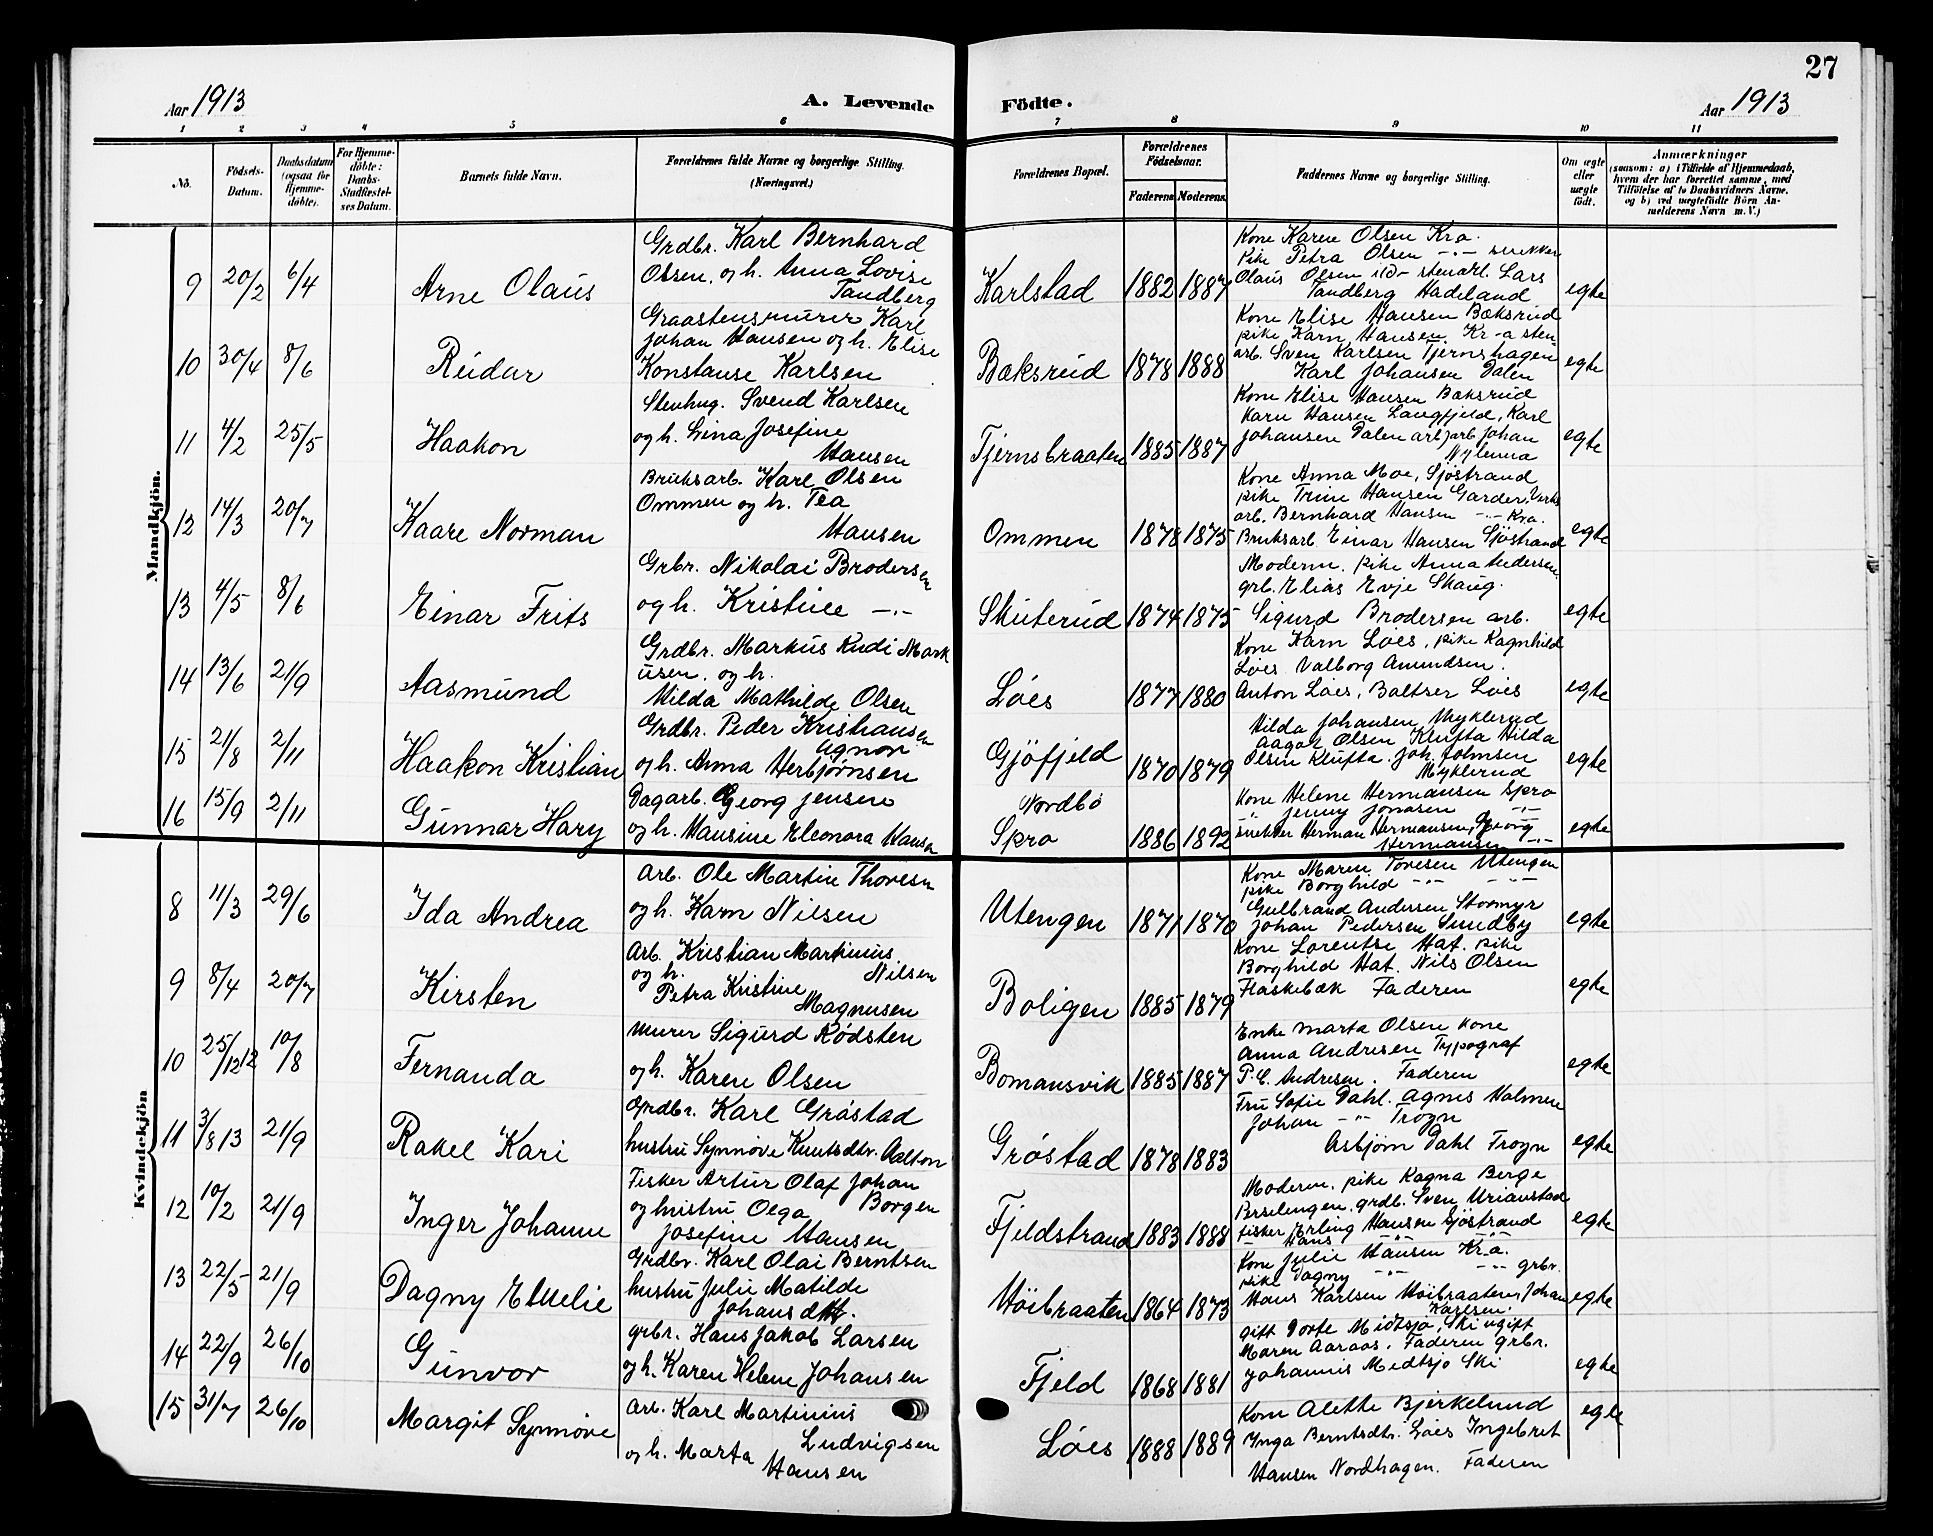 27
Aar 1913
A. Levende Födte.
Aar 1913
1 2 3 4 5 6 7 8 9 10 11
No.
Födsels-Datum.
Daabsdatum (ogsaa for Hjemme-döbte).
For Hjemme-döbte: Daabs-Stadfæstel-ses Datum.
Barnets fulde Navn.
Forældrenes fulde Navne og borgerlige Stilling.
(Næringsvei.)
Forældrenes Bopæl.
Forældrenes Födselsaar.
Faderens Moderens.
Faddernes Navne og borgerlige Stilling.
Om ægte eller uægte födt.
Anmærkninger
(saasom: a) i Tilfælde af Hjemmedaab,
hvem der har forrettet samme, med
Tilföielse af to Daabsvidners Navne,
og b) ved uægtefödte Börn An-
melderens Navn m. V.)
Mandkjön.
9 20/2 6/4 Arne Olaus
Grdbr. Karl Bernhard
Olsen, og h. Anna Lovise
Tandberg
Karlstad 1882 1887
Kone Karen Olsen Kra.
Pike Petra Olsen -"-
Olaus Olsen ild- stenarb. Lars
Tandberg Hadeland
egte
10 30/4 8/6 Reidar
Graastensmurer Karl
Johan Hansen og h. Elise
Konstanse Karlsen
Bæksrud 1878 1888
Kone Elise Hansen Bæksrud
pike Karn Hansen. Kr-a sten
arb. Sven Karlsen Tjernshagen
Karl Johansen Dalen
egte
11 4/2 25/5 Haakon
Stenhug. Svend Karlsen
og h. Lina Josefine
Hansen
Tjernsbraaten 1885 1887
Kone Elise Hansen Bæksrud
Karn Hansen Langfjeld, Karl
Johansen Dalen arb, arb Johan
Nylenna
egte
12 14/3 20/7 Kaare Norman
Bruksarb. Karl Olsen
Ommen og h. Tea
Hansen
Ommen 1878 1875
Kone Anna Moe, Sjöstrand
pike Trine Hansen Garder, Verks
arb. Bernhard Hansen -"- Kra.
Bruksarb Einar Hansen Sjöstrand
egte
13 4/5 8/6 Einar Frits
Grbr. Nikolai Brodersen
og h. Kristine -"-
Skuterud 1874 1875
Modern. pike Anna Andersen.
grb. Elias Evje Skaug.
Sigurd Brodersen arb.
egte
14 13/6 21/9 Aasmund
Grdbr. Markus Rudi Mark
usen. og h.
Hilda Mathilde Olsen
Löes 1877 1880
Kone Karn Löes, pike Ragnhild
Löes Valborg Amundsen.
Anton Löes, Baltser Löes
egte
15 21/8 2/11 Haakon Kristian
Grdbr. Peder Kristiansen
Agnor
og h. Anna Herbjörnsen
Gjöfjeld 1870 1879
Hilda Johansen Myklerud
Aagot Olsen Klufta Hilda
Olsen Klufta. Joh. Johnsen
Myklerud
egte
16 15/9 2/11 Gunnar Hary
Dagarb. Georg Jensen
og h. Hansine Eleonora Hansen
Nordbö
Spro 1886 1892
Kone Helene Hermansen Spro
-"- Jenny Jonasen -"-
snekker Herman Hermansen, Georg
Hermansen -"-
egte
Kvindekjön
8 11/3 29/6 Ida Andrea
Arb. Ole Martin Thoresn
og h. Karn Nilsen
Utengen 1871 1870
Kone Maren Toresen Utengen
pike Borghild -"- -"-
Gulbrand Andersen Stormyr
Johan Pedersen Sundby
egte
9 8/4 20/7 Kirsten
Arb. Kristian Martinius
og h. Nilsen
Petra Kristine
Magnusen
Boligen 1885 1879
Kone Lorentse Hat. pike
Borghild Hat. Nils Olsen
Flaskebæk Faderen
egte
10 25/12 12 10/8 Fernanda
Murer Sigurd Rödsten
og h. Karen Olsen
Bomansvik 1885 1887
Enke Marta Olsen Kone
Anna Andresen Typograf
P.C. Andresen. Faderen
egte
11 3/8 13 21/9 Rakel Kari
Grdbr. Karl Gröstad
hustru Synnöve Knutsdtr. Aalton
Gröstad 1878 1883
Fru Sofie Dahl. Agnes Holmen
Johan -"- Trogn
Asbjörn Dahl Frogn
egte
12 10/2 21/9 Inger Johanne
Fisker Artur Olaf Johan
og hustru Olga Borgen
Josefine Hansen
Fjeldstrand 1883 1888
Moderen, pike Ragna Berge
Berselengen, grdb. Sven Urianstad
fisker Erling Hansen Sjöstrand
Hans -"- -"-
egte
13 22/5 21/9 Dagny Emelie
Grdbr. Karl Olai Berntsen
hustru Julie Matilde
Johansdtt.
Höibraaten 1864 1873
Kone Julie Hansen Kr.a.
pike Dagny -"- -"- grbr.
Hans Karlsen Höibraaten, Johan
Karlsen.
egte
14 22/9 26/10 Gunvor
grbr. Hans Jakob Larsen
og h. Karen Helene Johansen
Fjeld 1868 1881
gift Dorte Midtsjö, Ski ugift
Maren Aaraas. Faderen grbr.
Johannis Medtsjö Ski
egte
15 31/7 26/10 Margit Synnöve
Arb. Karl Martinius
Ludvigsen
og h. Marta
Hansen
Löes 1888 1889
Kone Alette Bjerkelund
Inga Berntsdtr. Löes Ingebret
Hansen Nordhagen. Faderen
egte